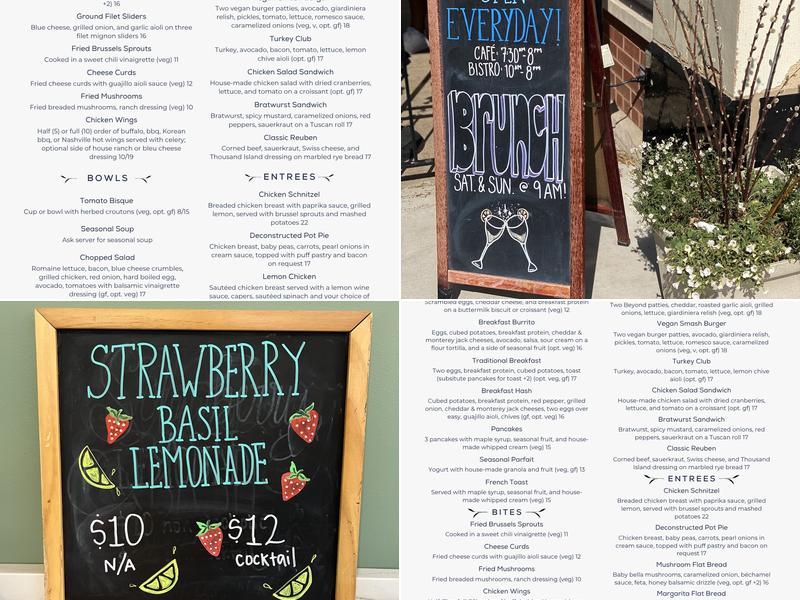 +2) 16
Ground Filet Sliders
Blue cheese, grilled onion, and garlic aioli on three
filet mignon sliders 16
Fried Brussels Sprouts
Cooked in a sweet chili vinaigrette (veg) 11
Cheese Curds
Fried cheese curds with guajillo aioli sauce (veg) 12
Fried Mushrooms
Fried breaded mushrooms, ranch dressing (veg) 10
Chicken Wings
Half (5) or full (10) order of buffalo, bbq, Korean
bbq, or Nashville hot wings served with celery;
optional side of house ranch or bleu cheese
dressing 10/19
BOWLS
Tomato Bisque
Cup or bowl with herbed croutons (veg, opt. gf) 8/15
Seasonal Soup
Ask server for seasonal soup
Chopped Salad
Romaine lettuce, bacon, blue cheese crumbles,
grilled chicken, red onion, hard boiled egg,
avocado, tomatoes with balsamic vinaigrette
dressing (gf, opt. veg) 17
Two vegan burger patties, avocado, giardiniera
relish, pickles, tomato, lettuce, romesco sauce,
caramelized onions (veg, v, opt. gf) 18
Turkey Club
Turkey, avocado, bacon, tomato, lettuce, lemon
chive aioli (opt. gf) 17
Chicken Salad Sandwich
House-made chicken salad with dried cranberries,
lettuce, and tomato on a croissant (opt. gf) 17
Bratwurst Sandwich
Bratwurst, spicy mustard, caramelized onions, red
peppers, sauerkraut on a Tuscan roll 17
Classic Reuben
Corned beef, sauerkraut, Swiss cheese, and
Thousand Island dressing on marbled rye bread 17
ENTREES
Chicken Schnitzel
Breaded chicken breast with paprika sauce, grilled
lemon, served with brussel sprouts and mashed
potatoes 22
Deconstructed Pot Pie
Chicken breast, baby peas, carrots, pearl onions in
cream sauce, topped with puff pastry and bacon
on request 17
Lemon Chicken
Sautéed chicken breast served with a lemon wine
sauce, capers, sautéed spinach and your choice of
OPEN
EVERYDAY!
CAFÉ: 7:30AM-8PM
BISTRO: 10AM-8PM
BRUNCH
SAT. & SUN. @ 9AM!
STRAWBERRY
BASIL
LEMONADE
$10
N/A
$12
cocktail
Scrambled eggs, cheddar cheese, and breakfast protein
on a buttermilk biscuit or croissant (veg) 12
Breakfast Burrito
Eggs, cubed potatoes, breakfast protein, cheddar &
monterey jack cheeses, avocado, salsa, sour cream on a
flour tortilla, and a side of seasonal fruit (opt. veg) 16
Traditional Breakfast
Two eggs, breakfast protein, cubed potatoes, toast
(subsitute pancakes for toast +2) (opt. veg, gf) 17
Breakfast Hash
Cubed potatoes, breakfast protein, red pepper, grilled
onion, cheddar & monterey jack cheeses, two eggs over
easy, guajillo aioli, chives (gf, opt. veg) 16
Pancakes
3 pancakes with maple syrup, seasonal fruit, and house-
made whipped cream (veg) 15
Seasonal Parfait
Yogurt with house-made granola and fruit (veg, gf) 13
French Toast
Served with maple syrup, seasonal fruit, and house-
made whipped cream (veg) 15
BITES
Fried Brussels Sprouts
Cooked in a sweet chili vinaigrette (veg) 11
Cheese Curds
Fried cheese curds with guajillo aioli sauce (veg) 12
Fried Mushrooms
Fried breaded mushrooms, ranch dressing (veg) 10
Chicken Wings
Two Beyond patties, cheddar, roasted garlic aioli, grilled
onions, lettuce, giardiniera relish (veg, opt. gf) 18
Vegan Smash Burger
Two vegan burger patties, avocado, giardiniera relish,
pickles, tomato, lettuce, romesco sauce, caramelized
onions (veg, v, opt. gf) 18
Turkey Club
Turkey, avocado, bacon, tomato, lettuce, lemon chive
aioli (opt. gf) 17
Chicken Salad Sandwich
House-made chicken salad with dried cranberries,
lettuce, and tomato on a croissant (opt. gf) 17
Bratwurst Sandwich
Bratwurst, spicy mustard, caramelized onions, red
peppers, sauerkraut on a Tuscan roll 17
Classic Reuben
Corned beef, sauerkraut, Swiss cheese, and Thousand
Island dressing on marbled rye bread 17
ENTREES
Chicken Schnitzel
Breaded chicken breast with paprika sauce, grilled
lemon, served with brussel sprouts and mashed
potatoes 22
Deconstructed Pot Pie
Chicken breast, baby peas, carrots, pearl onions in
cream sauce, topped with puff pastry and bacon on
request 17
Mushroom Flat Bread
Baby bella mushrooms, caramelized onion, béchamel
sauce, feta, honey balsamic drizzle (veg, opt. gf +2) 16
Margarita Flat Bread